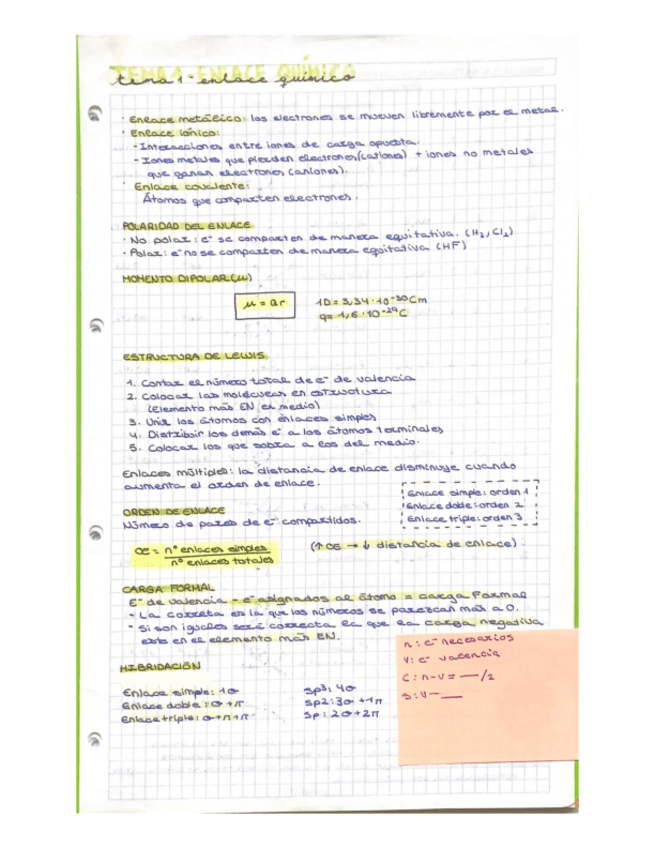 TEMA 1 - ENLACE QUÍMICO
tema 1 - enlace químico
· Enlace metálico: los electrones se mueven libremente por el metal.
· Enlace iónico:
- Interacciones entre iones de carga opuesta.
- Iones metales que pierden electrones (cationes) + iones no metales
que ganan electrones (aniones).
· Enlace covalente:
Átomos que comparten electrones.
POLARIDAD DEL ENLACE
· No polar: e⁻ se comparten de manera equitativa. (H₂, Cl₂)
· Polar: e⁻ no se comparten de manera equitativa (HF)
MOMENTO DIPOLAR (μ)
μ = Q r
1D = 3,34 · 10⁻³⁰ Cm
q = 1,6 · 10⁻²⁹ C
ESTRUCTURA DE LEWIS
1. Contar el número total de e⁻ de valencia
2. Colocar las moléculas en estructura
(Elemento más EN el medio)
3. Unir los átomos con enlaces simples
4. Distribuir los demás e⁻ a los átomos terminales
5. Colocar los que sobra a los del medio.
Enlaces múltiples: la distancia de enlace disminuye cuando
aumenta el orden de enlace.
Enlace simple: orden 1
Enlace doble: orden 2
Enlace triple: orden 3
ORDEN DE ENLACE
Número de pares de e⁻ compartidos.
OE = nº enlaces simples / nº enlaces totales
(↑ OE → ↓ distancia de enlace)
CARGA FORMAL
E⁻ de valencia - e⁻ asignados al átomo = carga formal
- La correcta es la que los números se parezcan más a 0.
- Si son iguales será correcta la que la carga negativa
esté en el elemento más EN.
HIBRIDACIÓN
Enlace simple: 1σ
Enlace doble: σ + π
Enlace triple: σ + π + π
sp³: 4σ
sp2: 3σ + 1π
sp: 2σ + 2π
n: e⁻ necesarios
V: e⁻ valencia
C: n - V = __ /2
S: V - __